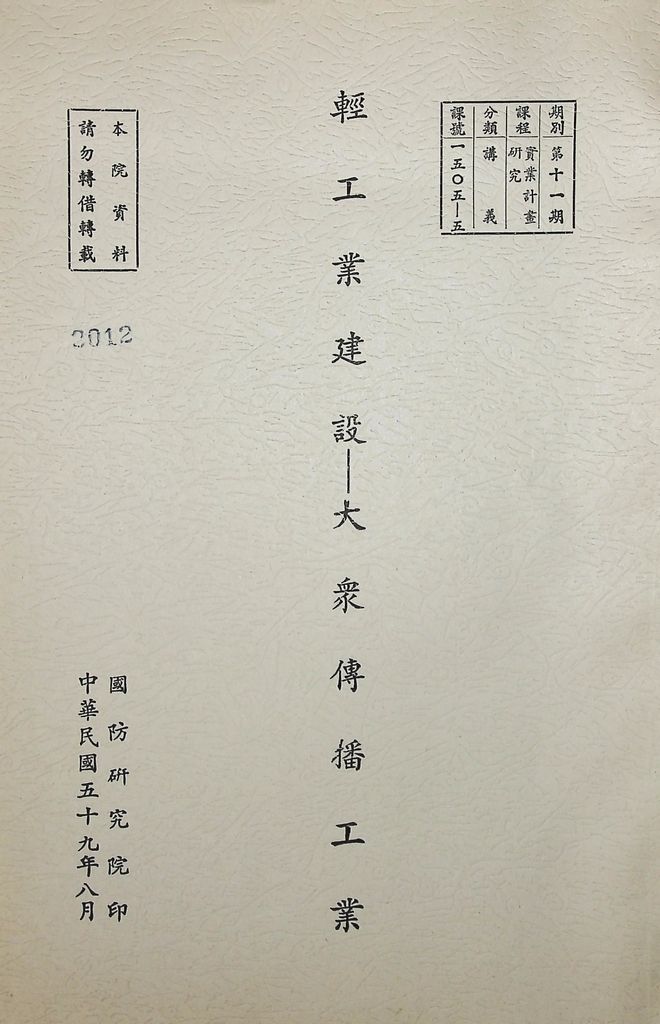 期別 第十一期
課程 實業計畫研究
分類 講義
課號 一五〇五—五
輕工業建設—大衆傳播工業
本院資料
請勿轉借轉載
2012
國防研究院印
中華民國五十九年八月